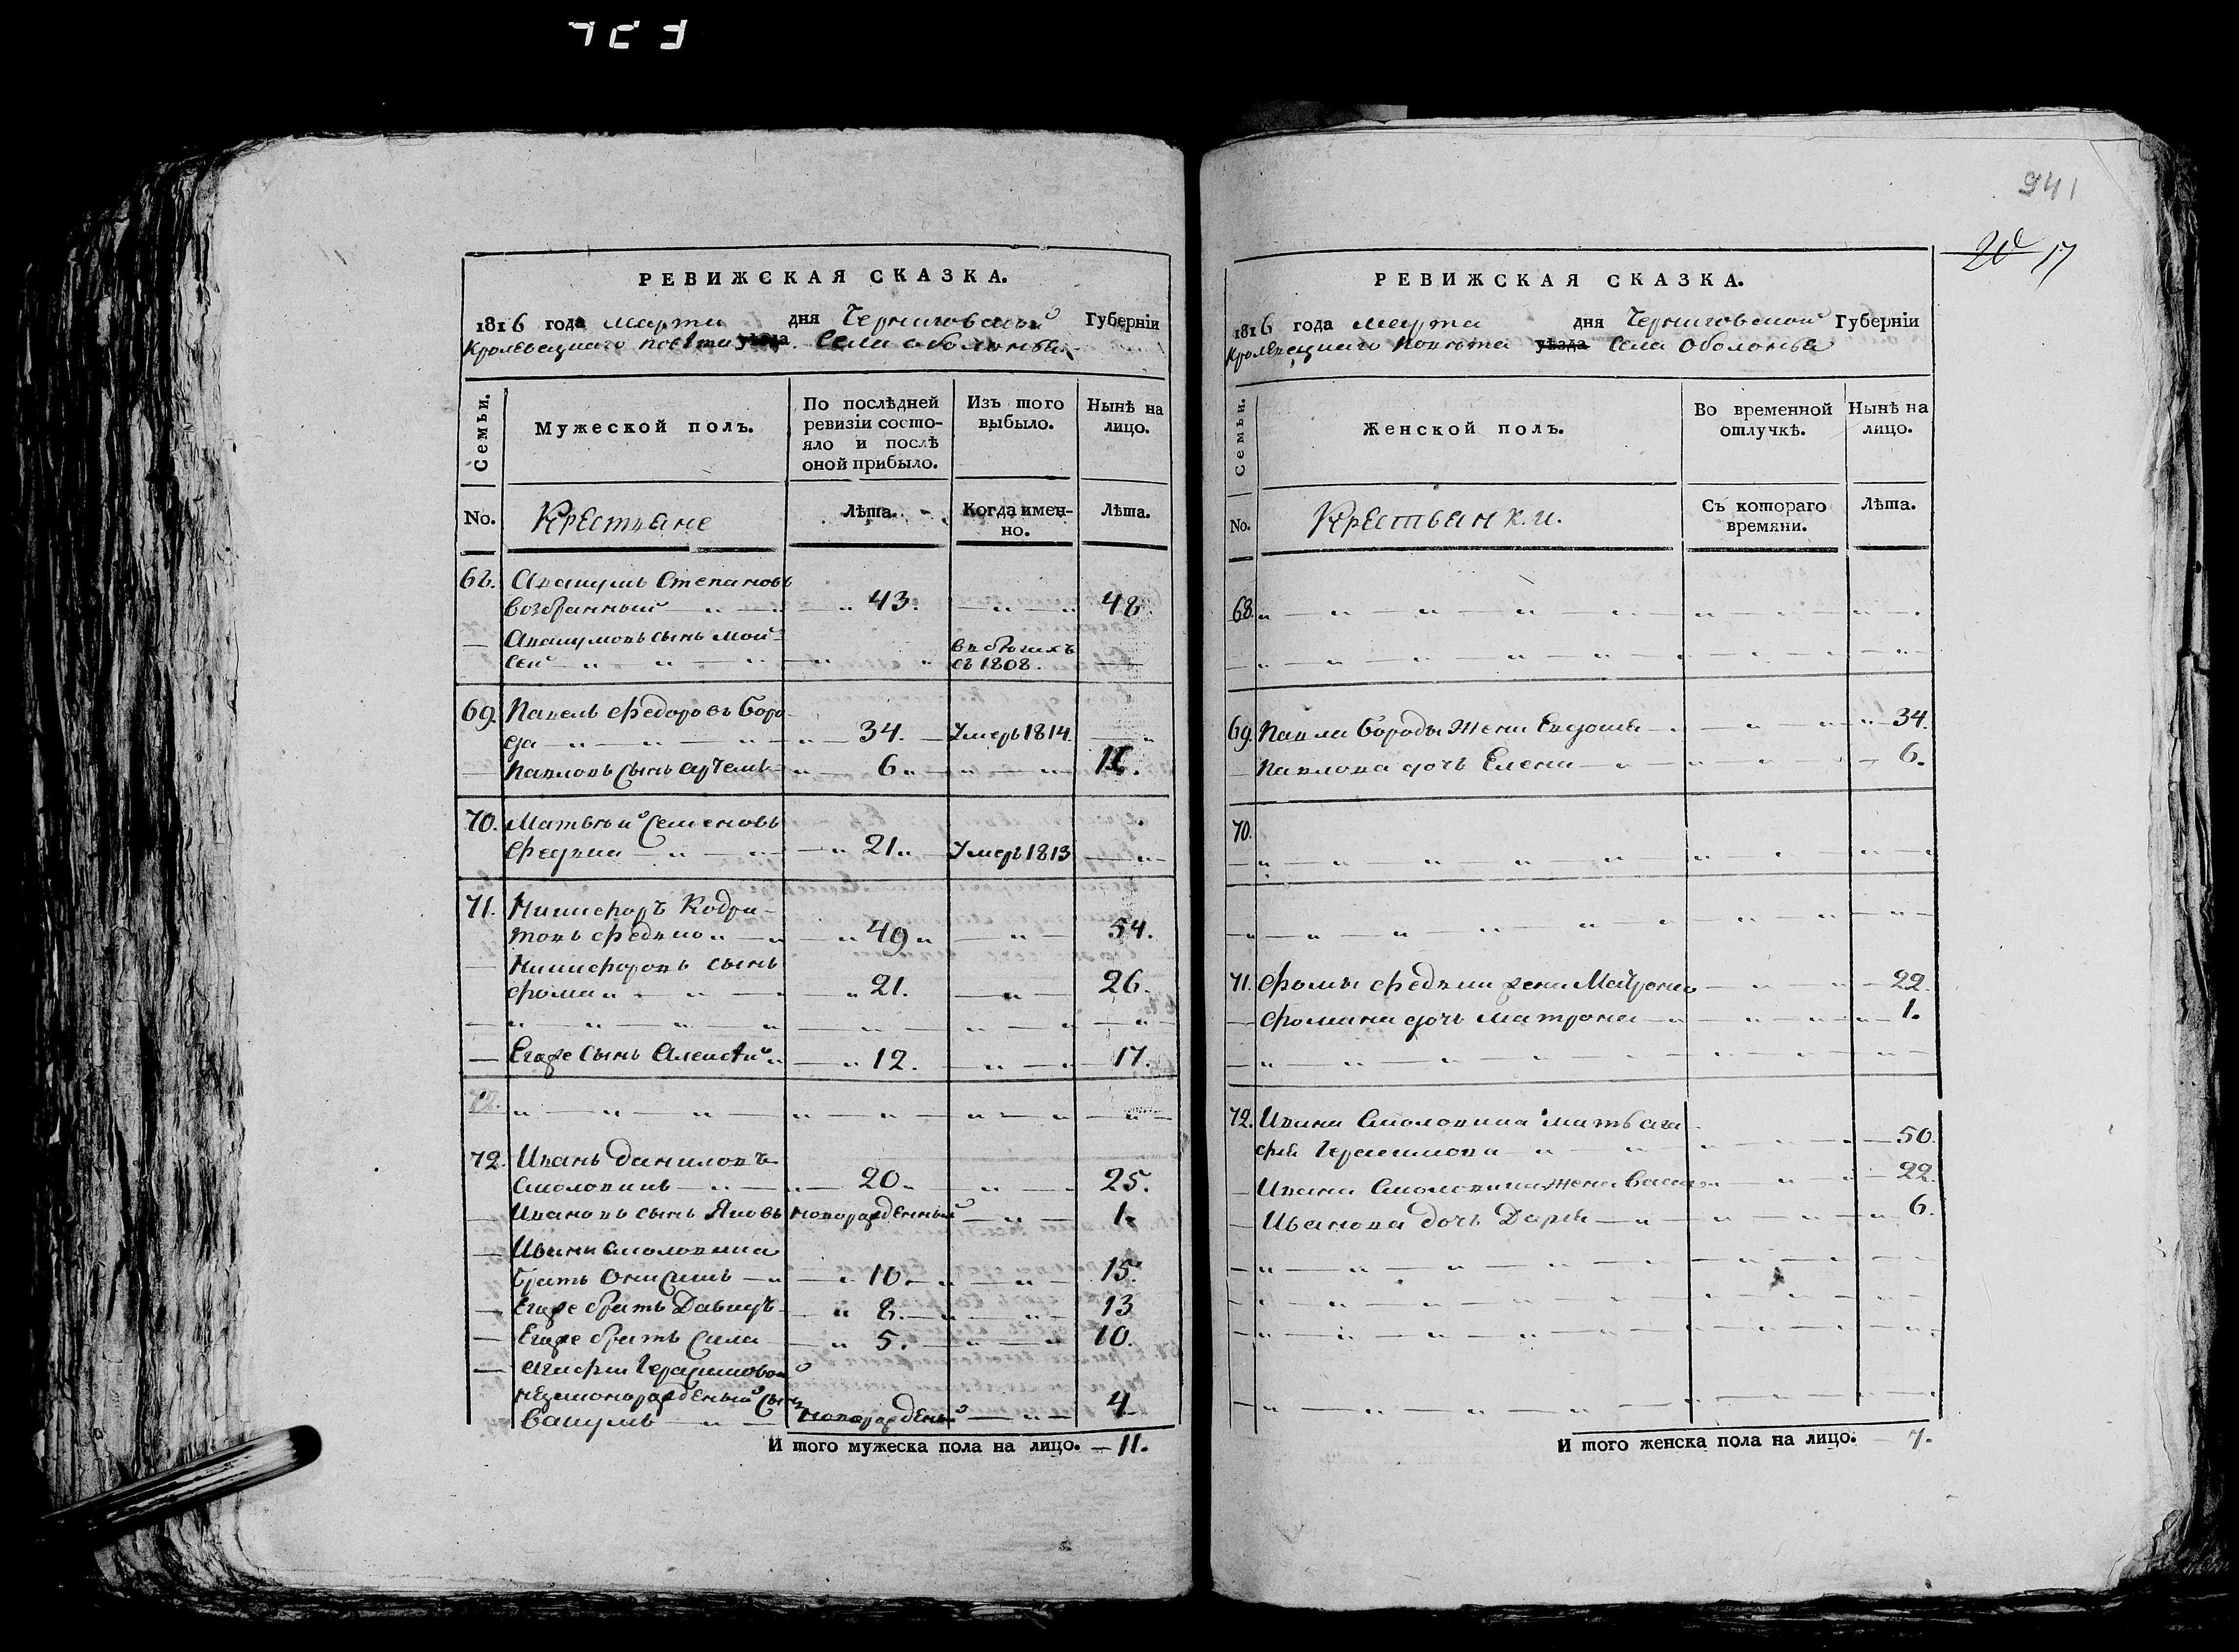 941
20 17
РЕВИЖСКАЯ СКАЗКА.
1816 года марта дня Черниговской Губернїи
Кролевецкаго повѣта уѣзда Села Оболонья
Семьи.
Мужеской полъ.
По послѣдней ревизїи состо-
яло и послѣ
оной прибыло.
Изъ того
выбыло.
Нынѣ на
лицо.
No.
Крестьяне
Лѣта.
Когда имен-
но.
Лѣта.
68. Авакумъ Степановъ
43. 48
Авакумовъ сынъ Мои-
сей въ бѣгахъ
съ 1808.
69. Павелъ Федоровъ Боро-
да 34. Умеръ 1814.
Павловъ сынъ Артемъ 6 11.
70. Матвѣй Семеновъ
21 Умеръ 1813
71. Никифоръ Кодра-
товъ Федько 49 54.
Никифоровъ сынъ
Фома 21. 26.
Егоже сынъ Алексѣй 12. 17.
72.
72. Иванъ Даниловъ
Смоловикъ 20 25.
Ивановъ сынъ Яковъ новорожденный 1.
Ивана Смоловика
братъ Онисимъ 10. 15.
Егоже братъ Давидъ 8. 13
Егоже братъ Сила 5. 10.
Агафіи Герасимовой
незаконорожденый сынъ
Вакулъ новорожденый 4
И того мужеска пола на лицо. 11.
РЕВИЖСКАЯ СКАЗКА.
1816 года марта дня Черниговской Губернїи
Кролевецкаго повѣта уѣзда Села Оболонья
Семьи.
Женской полъ.
Во временной
отлучкѣ.
Нынѣ на
лицо.
No.
Крестьянки.
Съ котораго
времяни.
Лѣта.
68.
69. Павла Бороды жена Евдокия 34.
Павлова дочь Елена 6.
70.
71. Фомы Федька жена Матрона 22.
Фомина дочь Матрона 1.
72. Ивана Смоловика мать Ага-
фія Герасимова 50.
Ивана Смоловика жена 22.
Иванова дочь Дарья 6.
И того женска пола на лицо. 7.